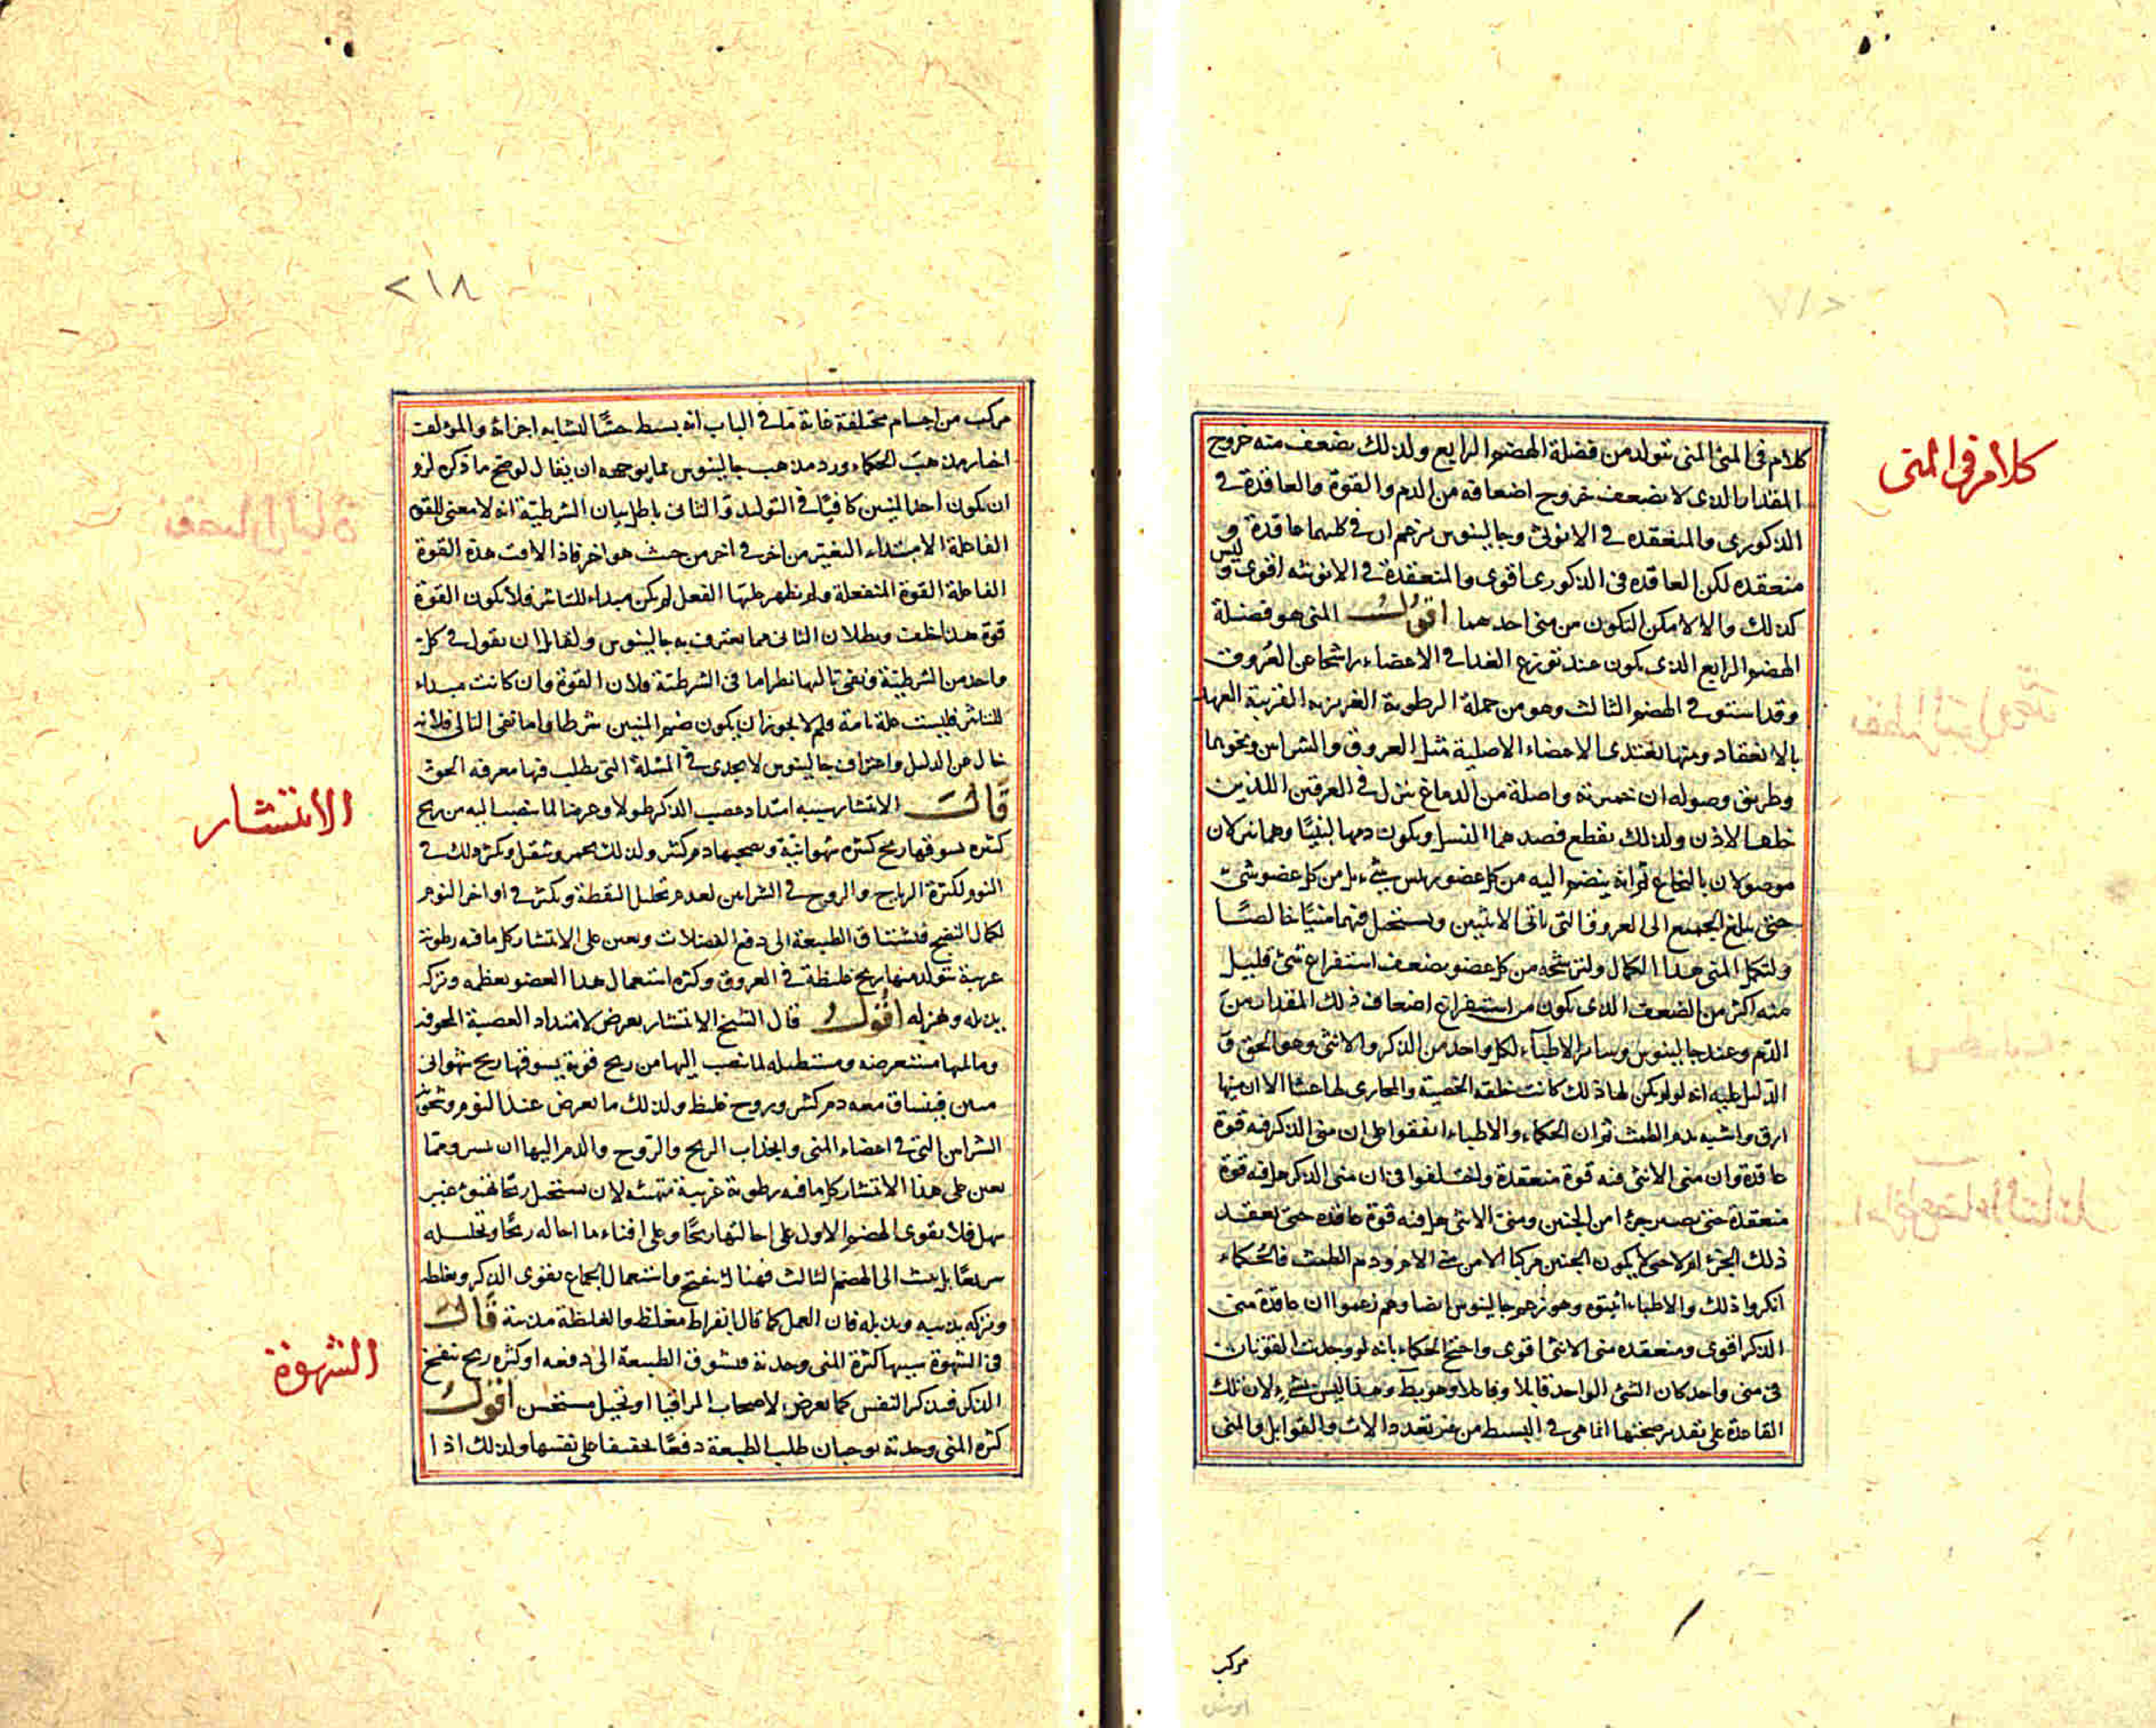 كلام في المنى
كلام في المنى المنى يتولد من فضلة الهضم الرابع ولذلك يضعف منه خروج
المقدار الذى لا يضعف خروج اضعافه من الدم والقوة والعاقدة في
الذكورى والمنعقده في الانوثى وجالينوس يزعم ان في كليهما عاقدة و
منعقده لكن العاقده في الذكورى اقوى والمنعقدة في الانوثيه اقوى وليس
كذلك والا لامكن التكون من منى احدهما اقول المنى هو فضلة
الهضم الرابع الذى يكون عند توزع الغذا في الاعضاء راشحا عن العروق
وقد استتم في الهضم الثالث وهو من جملة الرطوبة الغريزيه القريبة العهد
بالانعقاد ومنها تغتذى الاعضاء الاصلية مثل العروق والشراين ونحوهما
وطريق وصوله ان خميرته واصلة من الدماغ تنزل في العرقين اللذين
خلف الاذن ولذلك يقطع فصدهما النسل ويكون دمها لبنيًا وهما ينزلان
موصولان بالنخاع ثم انه ينضم اليه من كل عضو رئيس شىء بل من كل عضو شىء
حتى يبلغ الجميع الى العروق التى تاتى الانثيين ويستحيل فيهما منيًا خالصًا
ولتكمل المنى هذا الكمال ولترشحه من كل عضو يضعف استفراغ شئ قليل
منه اكثر من الضعف الذى يكون من استفراغ اضعاف ذلك المقدار من
الدم وعند جالينوس وسائر الاطباء لكل واحد من الذكر والانثى وهو الحق و
الدليل عليه انه لو لم يكن لها ذلك كانت خلقه الخصية والمجارى لها عبثا الا ان منيها
ارق واشبه بدم الطمث ثم ان الحكماء والاطباء اتفقوا على ان منى الذكر فيه قوة
عاقدة وان منى الانثى فيه قوة منعقدة واختلفوا فى ان منى الذكر هل فيه قوة
منعقدة حتى يصير جزءا من الجنين ومنى الانثى هل فيه قوة عاقده حتى يعقد
ذلك الجزء ام لا حتى لا يكون الجنين مركبا الا من منى الام ودم الطمث فالحكماء
انكروا ذلك والاطباء اثبتوه وهو زعم جالينوس ايضا وهم زعموا ان عاقدة منى
الذكر اقوى ومنعقده منى الانثى اقوى واحتج الحكماء بانه لو وجدت القوتان
فى منى واحد كان الشئ الواحد قابلا وفاعلا وهو بسيط وهذا ليس بشىء لان تلك
القاعدة على تقدير صحتها انما هى في البسيط من غير تعدد الالات والقوابل والمنى
مركب
٢١٨
مركب من اجسام مختلفة غاية ما في الباب انه بسيط حسًا لتشابه اجزائه والمؤلف
اختار مذهب الحكماء ورد مذهب جالينوس بما يوجهه ان يقال لو صح ما ذكره لزم
ان يكون احد المنيين كافيًا في التوليد والثانى باطل بيان الشرطية انه لا معنى للقوة
الفاعلة الا مبتداء التغير من اخر في اخر من حيث هو اخر فاذا لاقت هذه القوة
الفاعلة القوة المنفعلة ولم يظهر عنها الفعل لم يكن مبداء للتاثير فلا يكون القوة
قوة هذا خلف وبطلان الثانى مما يعترف به جالينوس ولقائل ان يقول في كل
واحد من الشرطية ونفى تاليها نظر اما فى الشرطية فلان القوة وان كانت مبداء
للتاثير فليست علة تامة فلم لا يجوز ان يكون ضم المنيين شرطا واما نفى التالى فلانه
خال عن الدليل واعتراف جالينوس لا يجدى في المسئلة التى يطلب فيها معرفه الحق
الانتشار
قال الانتشار سببه امتداد عصب الذكر طولا وعرضا لما ينصب اليه من ريح
كثيره يسوقها ريح كثيره شهوانية ويصحبها دم كثير ولذلك يحمر ويثقل ويكثر ذلك في
النوم لكثرة الرياح والروح في الشراين لعدم تحليل اليقظة ويكثر في اواخر النوم
لكمال النضج فتشتاق الطبيعة الى دفع الفضلات ويعين على الانتشار كل ما فيه رطوبة
غريبة تتولد منها ريح غليظة في العروق وكثره استعمال هذا العضو يعظمه وتركه
يذبله ويهزله اقول قال الشيخ الانتشار يعرض لامتداد العصبة المجوفة
وما يليها مستعرضه ومستطيله لما ينصب اليها من ريح قوية يسوقها ريح شهوانى
متين فينساق معه دم كثير وروح غليظ ولذلك ما يعرض عند النوم ويسخن
الشراين التى في اعضاء المنى وانجذاب الريح والروح والدم اليها ومما
يعين على هذا الانتشار كل ما فيه رطوبة غريبة متهيئة لان يستحيل ريحًا غير
سهل فلا يقوى الهضم الاول على احالتها ريحًا وعلى افناء ما احاله ريحًا وتحليله
سريعًا بل يلبث الى الهضم الثالث فهنالك ينفخ واستعمال الجماع يقوى الذكر ويغلظه
وتركه يذيبه ويذبله فان العمل كما قال ابقراط مغلظ والغلظة مذيبة قال
الشهوة
فى الشهوة سببها كثرة المنى وحدته فتشوق الطبيعة الى دفعه او كثرة ريح تنفخ
الذكر فيذكر النفس كما يعرض لاصحاب المراقيا او تخيل مستحسن اقول
كثره المنى وحدته يوجبان طلب الطبيعة دفعًا تخفيفا على نفسها ولذلك اذا